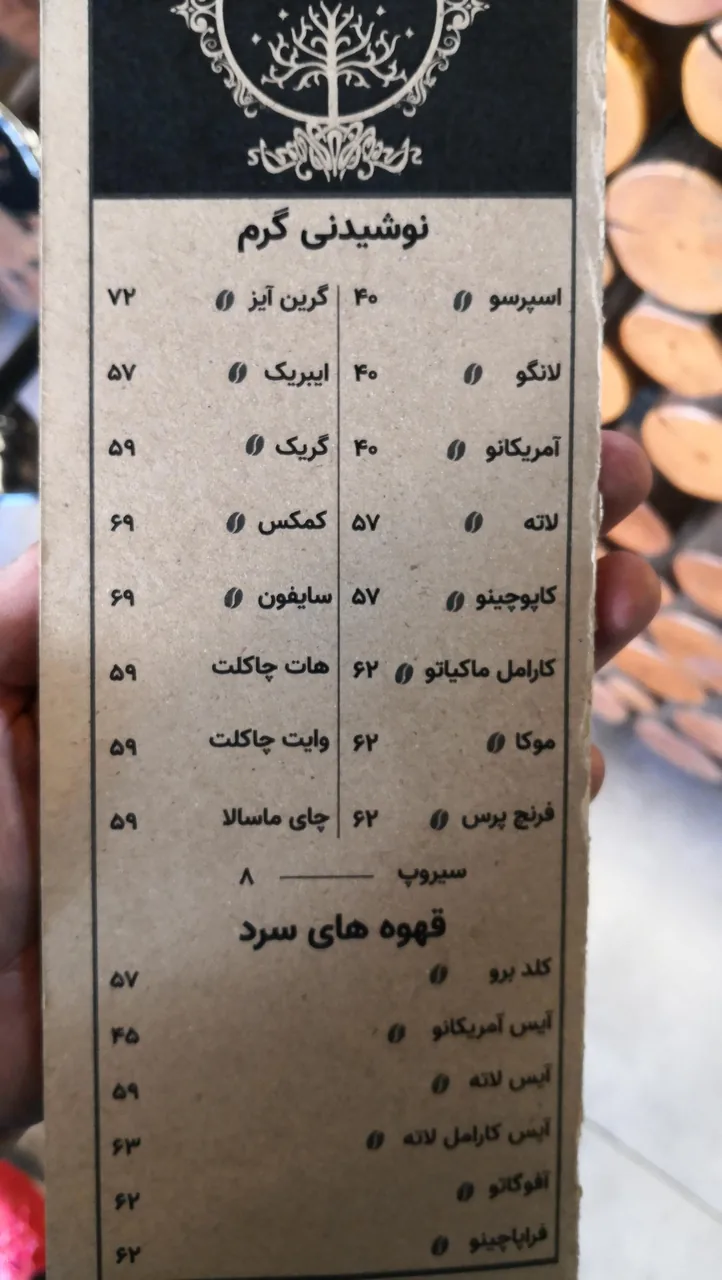 نوشیدنی گرم
اسپرسو ۴۰
لانگو ۴۰
آمریکانو ۴۰
لاته ۵۷
کاپوچینو ۵۷
کارامل ماکیاتو ۶۲
موکا ۶۲
فرنچ پرس ۶۲
گرین آیز ۷۲
ایبریک ۵۷
گریک ۵۹
کمکس ۶۹
سایفون ۶۹
هات چاکلت ۵۹
وایت چاکلت ۵۹
چای ماسالا ۵۹
سیروپ ۸
قهوه های سرد
کلد برو ۵۷
آیس آمریکانو ۴۵
آیس لاته ۵۹
آیس کارامل لاته ۶۳
آفوگاتو ۶۲
فراپاچینو ۶۲